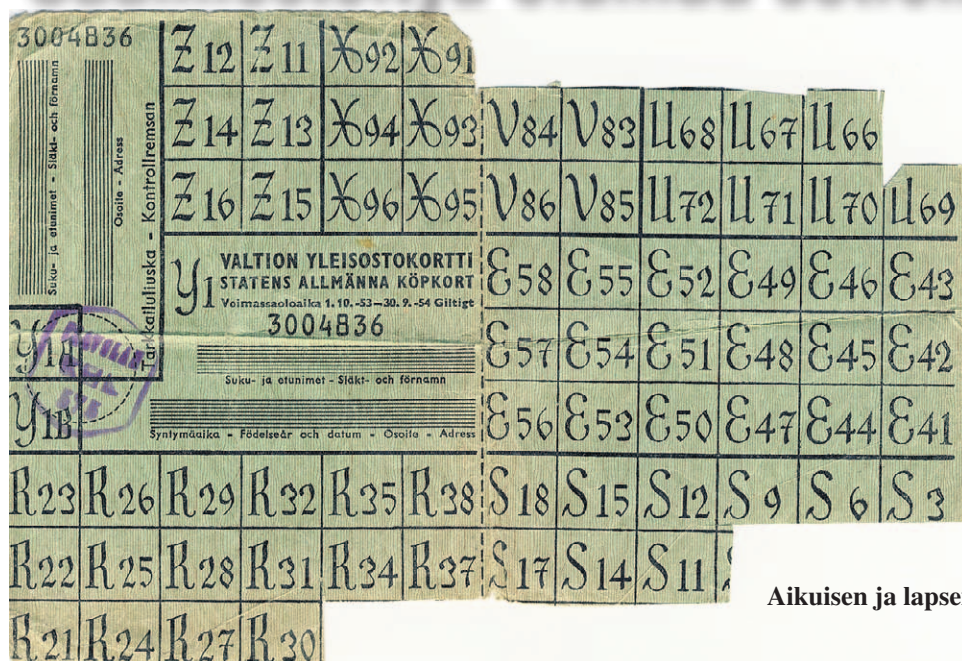 3004836
Suku- ja etunimet - Släkt- och förnamn
Osoite - Adress
Tarkkailuliuska - Kontrollremsan
Z 12 Z 11 X 92 X 91
Z 14 Z 13 X 94 X 93 V 84 V 83 U 68 U 67 U 66
Z 16 Z 15 X 96 X 95 V 86 V 85 U 72 U 71 U 70 U 69
Y1 VALTION YLEISOSTOKORTTI
STATENS ALLMÄNNA KÖPKORT
Voimassaoloaika 1. 10. -53—30. 9. -54 Giltigt
3004836
Suku- ja etunimet - Släkt- och förnamn
Syntymäaika - Födelseår och datum - Osoite - Adress
Y1A
Y1B
E 58 E 55 E 52 E 49 E 46 E 43
E 57 E 54 E 51 E 48 E 45 E 42
E 56 E 53 E 50 E 47 E 44 E 41
R 23 R 26 R 29 R 32 R 35 R 38 S 18 S 15 S 12 S 9 S 6 S 3
R 22 R 25 R 28 R 31 R 34 R 37 S 17 S 14 S 11
R 21 R 24 R 27 R 30
Aikuisen ja lapse